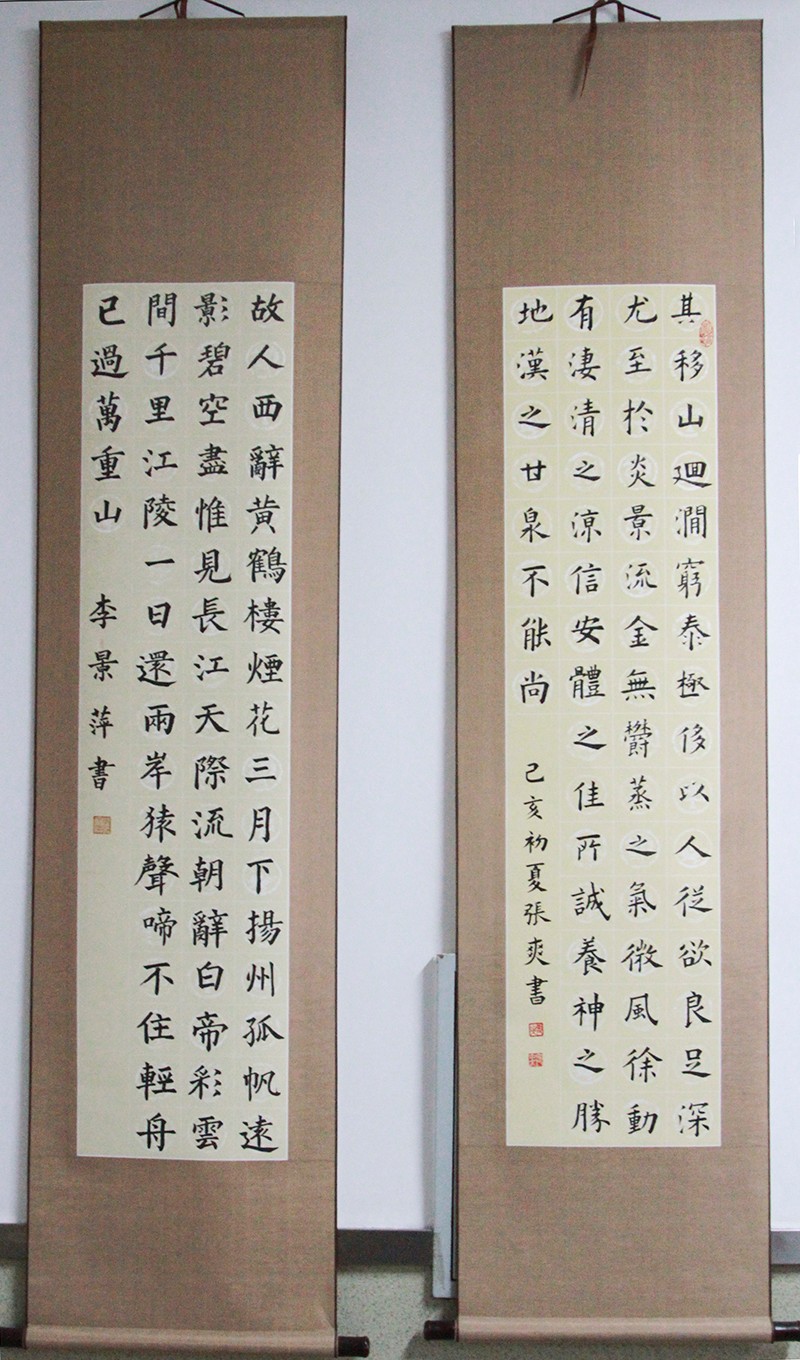 其移山廻澗窮泰極侈以人從欲良足深
尤至於炎景流金無鬱蒸之氣微風徐動
有淒清之涼信安體之佳所誠養神之勝
地漢之甘泉不能尚 己亥初夏張爽書
故人西辭黃鶴樓煙花三月下揚州孤帆遠
影碧空盡惟見長江天際流朝辭白帝彩雲
間千里江陵一日還兩岸猿聲啼不住輕舟
已過萬重山 李景萍書